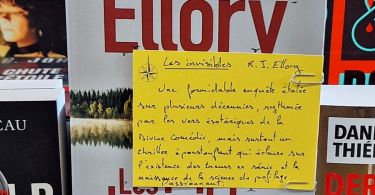 Ellory
Les invisibles R. J. Ellory
Une formidable enquête étalée
sur plusieurs décennies, rythmée
par les vers ésotériques de la
Divine Comédie, mais surtout un
thriller époustouflant qui éclaire sur
l'existence des tueurs en série et la
naissance de la science du profilage.
Passionnant.
EAU
DAN
THIÉ
DER